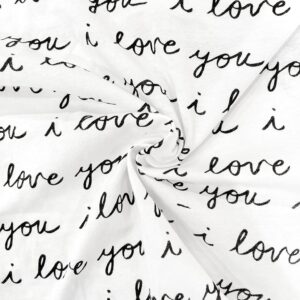 i love
you i love you you
i
you i love i l
i love
love you i love
you i lov you
i love you i i
i love i love
i love you